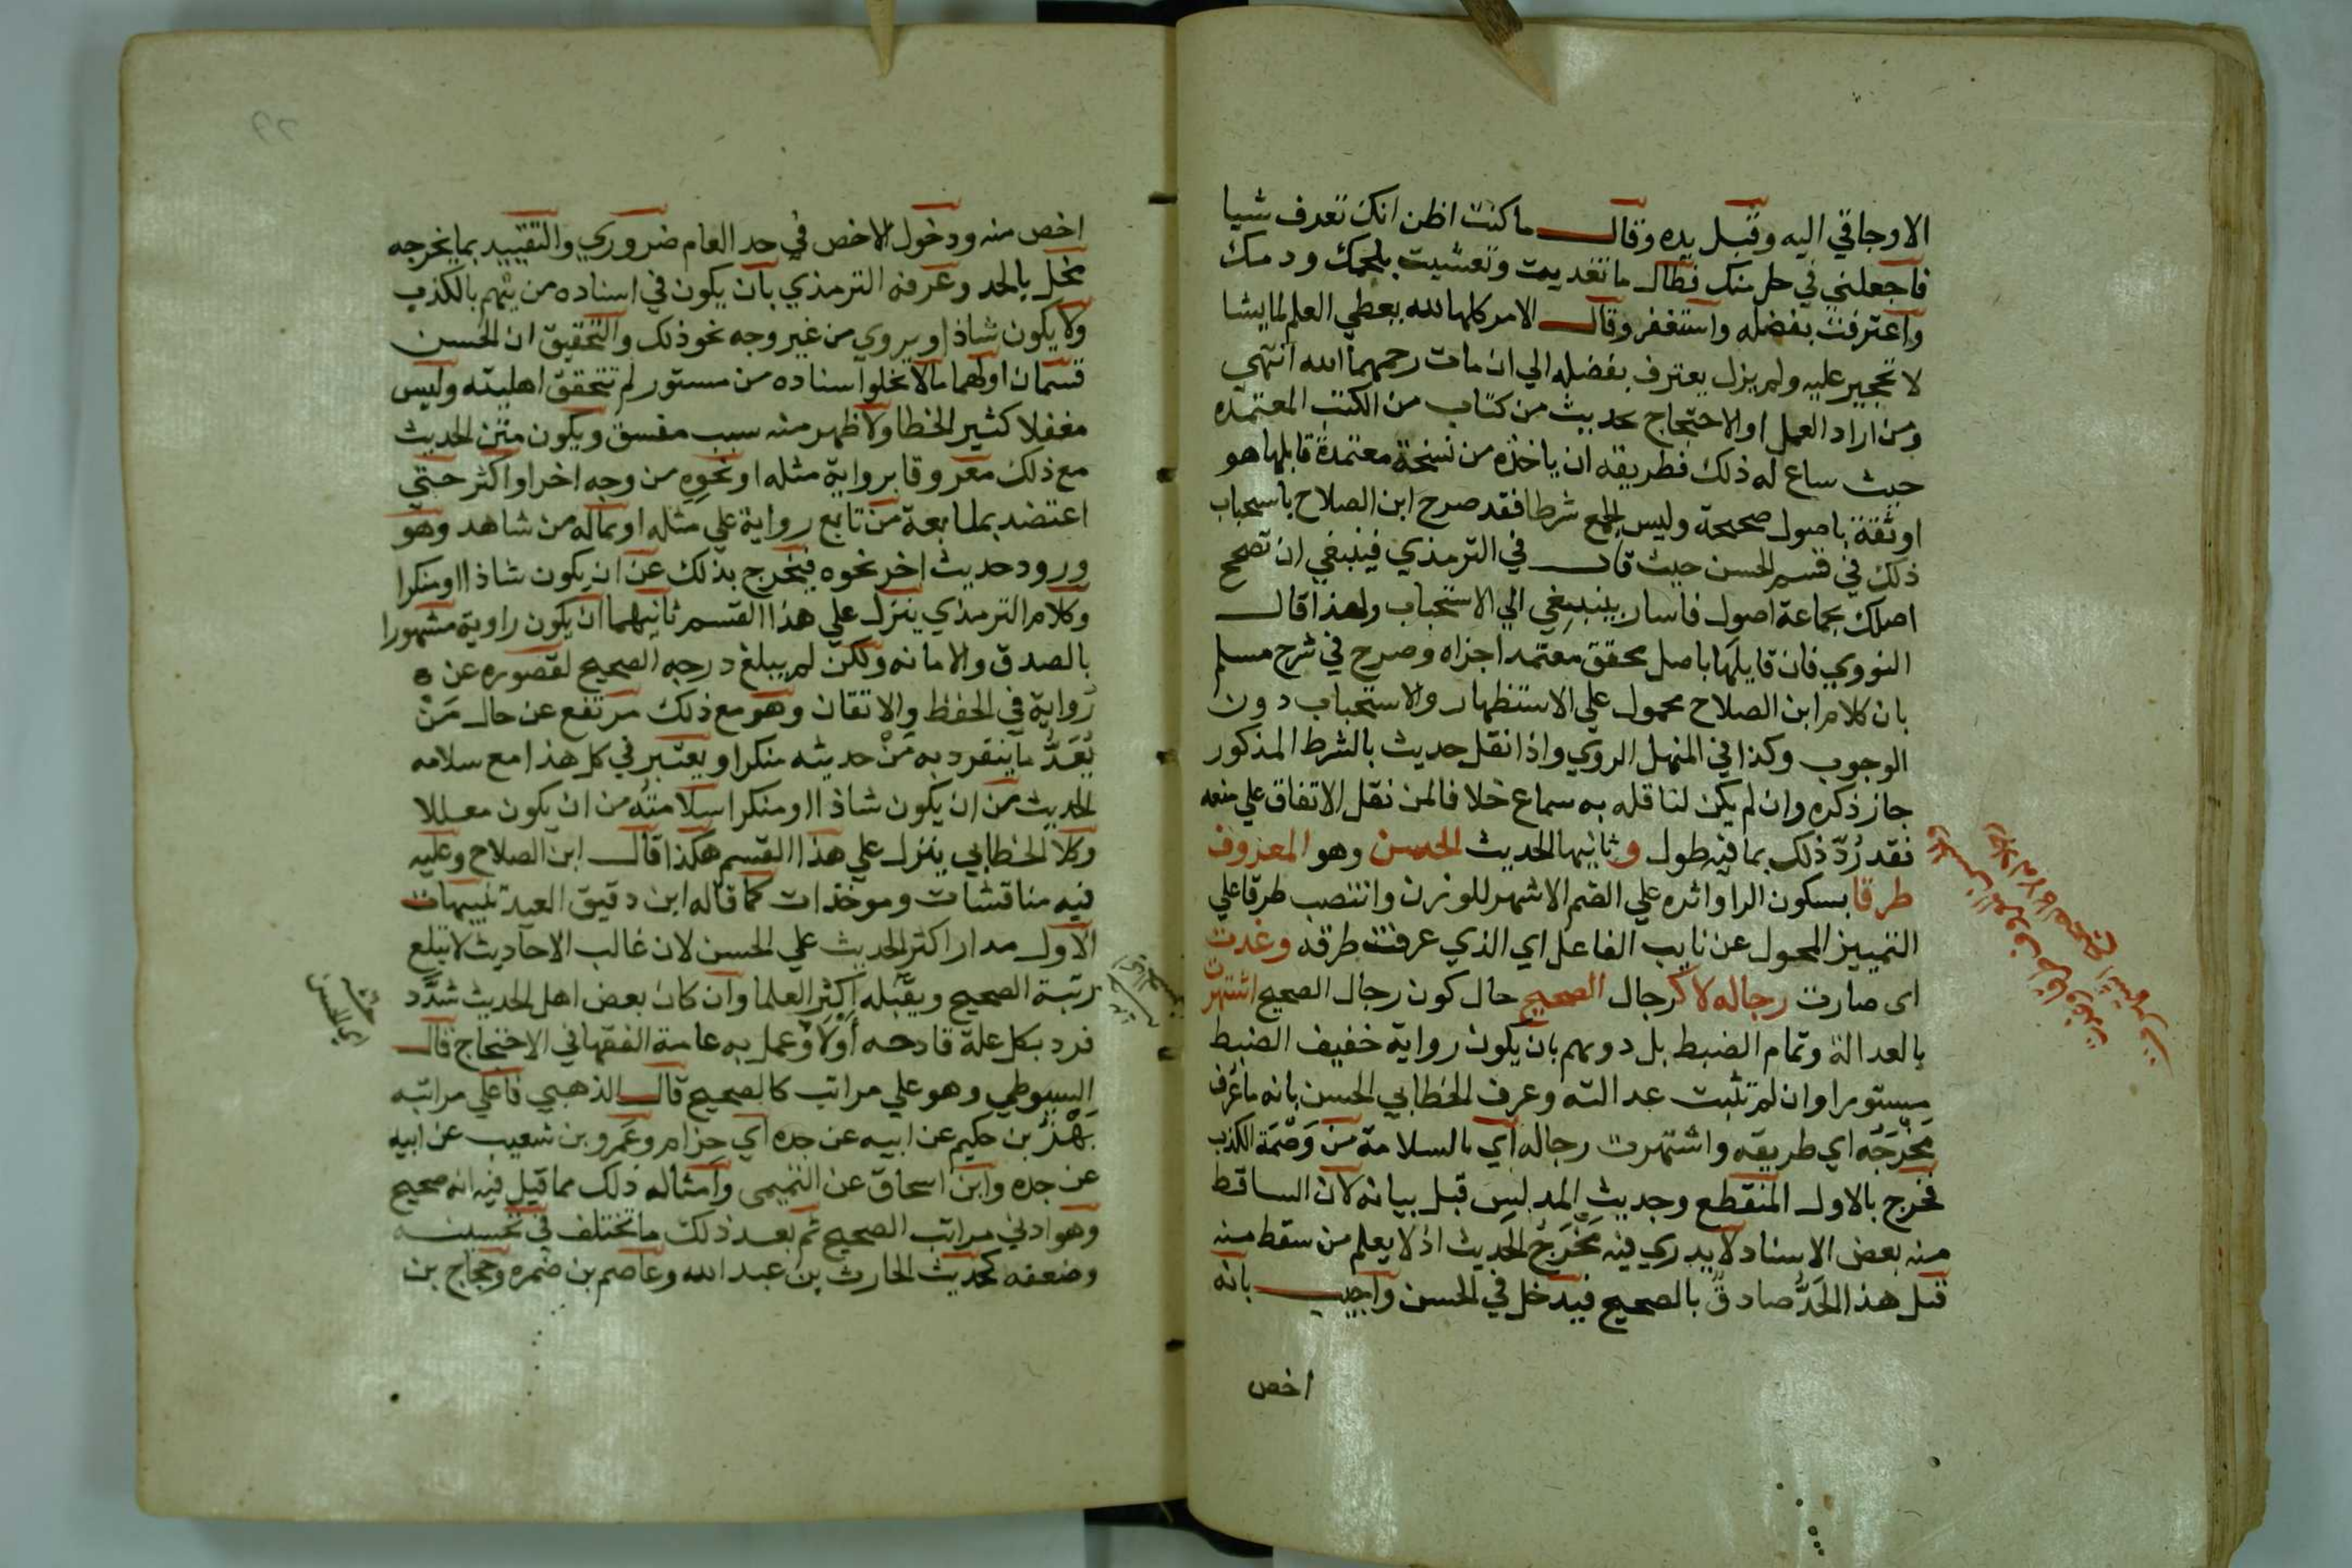 الاوجاقي اليه وقبل يده وقال ما كنت اظن انك تعرف شيا
فاجعلني في حل منك فطال ما تغديت وتعشيت بلحمك ودمك
واعترفت بفضله واستغفر وقال الامر كلها لله يعطي العلم لمايشا
لا تحجير عليه ولم يزل يعترف بفضله الي ان مات رحمهما الله انتهي
ومن اراد العمل او الاحتجاج بحديث من كتاب من الكتب المعتمده
حيث ساع له ذلك فطريقه ان ياخذه من نسخة معتمدة قابلها هو
او ثقة باصول صحيحة وليس الجمع شرطا فقد صرح ابن الصلاح باستحباب
ذلك في قسم الحسن حيث قال في الترمذي فينبغي ان تصحح
اصلك بجماعة اصول فاسار بينبغي الي الاستحباب ولهذا قال
النووي فان قابلها باصل محقق معتمد اجزاه وصرح في شرح مسلم
بان كلام ابن الصلاح محمول علي الاستظهار والاستحباب دون
الوجوب وكذا في المنهل الروي واذا نقل حديث بالشرط المذكور
جاز ذكره وان لم يكن لناقله به سماع خلافا لمن نقل الاتفاق علي منعه
فقد رُدّ ذلك بما فيه طول وثانيها الحديث الحسن وهو المعروف
طرقا بسكون الرا واثره علي الضم الاشهر للوزن وانتصب طرقا علي
التمييز المحول عن نايب الفاعل اي الذي عرفت طرقه وغدت
اى صارت رجاله لا كرجال الصحيح حال كون رجال الصحيح اشتهرت
بالعدالة وتمام الضبط بل دونهم بان يكون رواية خفيف الضبط
مستورا وان لم تثبت عدالته وعرف الخطابي الحسن بانه ما عُرف
مَخْرَجُه اي طريقه واشتهرت رجاله اي بالسلامة من وَصْمَة الكذب
فخرج بالاول المنقطع وحديث المدلس قبل بيانه لان الساقط
منه بعض الاسناد لا يدري فيه مَخْرَجُ الحديث اذ لا يعلم من سقط منه
قيل هذا الحَدُّ صادقٌ بالصحيح فيدخل في الحسن واجيب بانه
اخص
اخص منه ودخول الاخص في حد العام ضروري والتقييد بما يخرجه
مخل بالحد وعرفه الترمذي بان يكون في اسناده من يتهم بالكذب
ولا يكون شاذا ويروي من غير وجه نحو ذلك والتحقيق ان الحسن
قسمان اولهما مالا يخلوا اسناده من مستور لم تتحقق اهليته وليس
مغفلا كثير الخطا ولا ظهر منه سبب مفسق ويكون متن الحديث
مع ذلك معروفا برواية مثله او نحوه من وجه اخر او اكثر حتي
اعتضد بمتابعة من تابع رواية علي مثله او بماله من شاهد وهو
ورود حديث اخر نحوه فيخرج بذلك عن ان يكون شاذا او منكرا
وكلام الترمذي ينزل علي هذا القسم ثانيهما ان يكون راويه مشهورا
بالصدق والامانه ولكن لم يبلغ درجه الصحيح لقصوره عن
رواية في الحفظ والاتقان وهو مع ذلك مرتفع عن حال مَنْ
يُعَدُّ ما ينفرد به مَنْ حديثه منكرا ويعتبر في كل هذا مع سلامه
الحديث من ان يكون شاذا او منكرا سلامتُه من ان يكون معللا
وكلا الخطابي ينزل علي هذا القسم هكذا قال ابن الصلاح وعليه
فيه مناقشات وموخذات كما قاله ابن دقيق العيد تنبيهات
الاول مدار اكثر الحديث علي الحسن لان غالب الاحاديث لا تبلغ
رتبة الصحيح ويقبله اكثر العلما وان كان بعض اهل الحديث شدّد
فرد بكل علة قادحه أوْلا وعمل به عامة الفقها في الاحتجاج قال
السيوطي وهو علي مراتب كالصحيح قال الذهبي فاعلي مراتبه
بَهْزُ بن حكيم عن ابيه عن جده اي حزام وعَمرو بن شعيب عن ابيه
عن جده وابن اسحاق عن التيمى وامثاله ذلك مما قيل فيه انه صحيح
وهو ادني مراتب الصحيح ثم بعد ذلك ما تختلف في تحسينه
وضعفه كحديث الحارث بن عبد الله وعاصم بن ضمره وحجاج بن